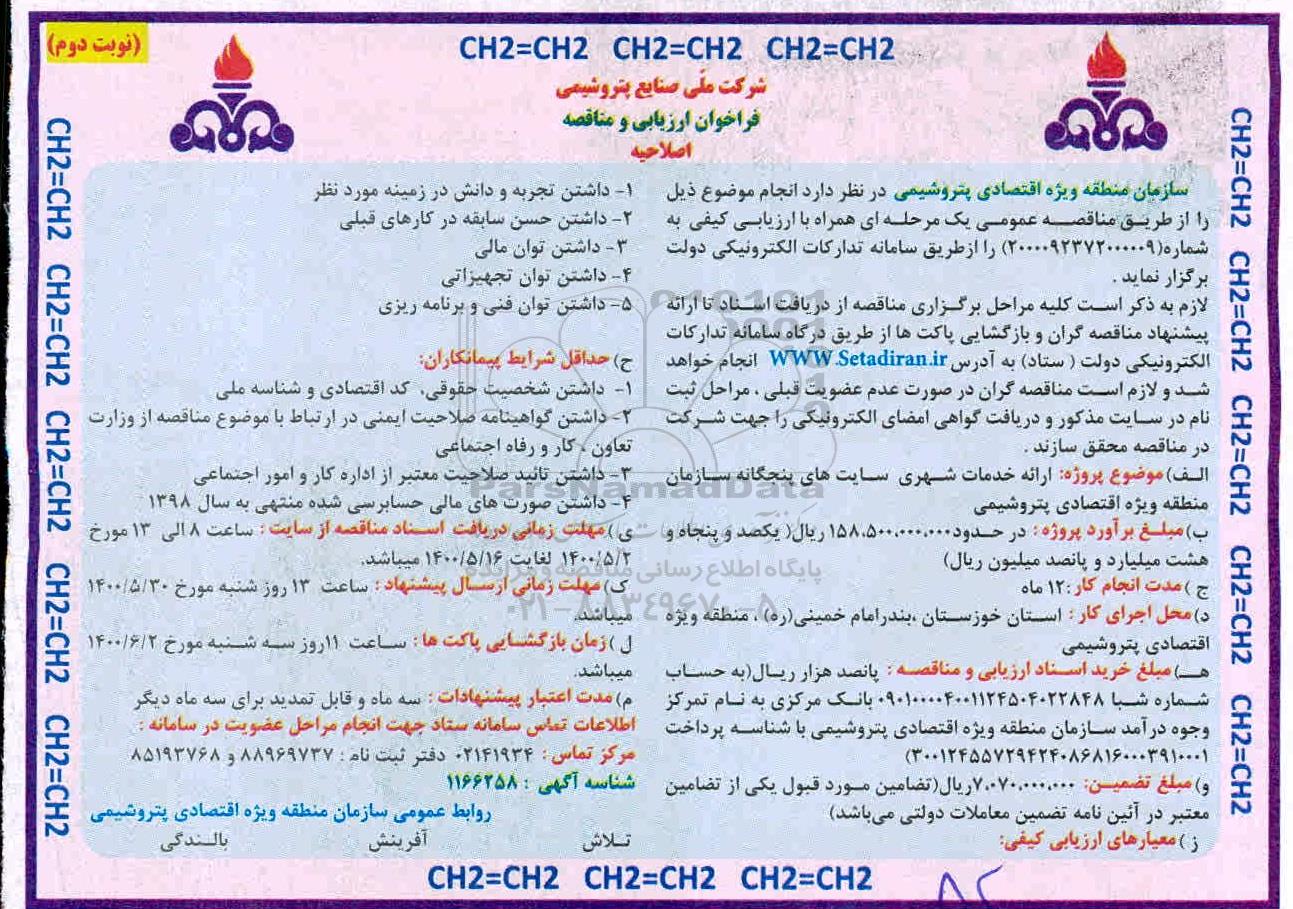 (نوبت دوم)
CH2=CH2 CH2=CH2 CH2=CH2
شرکت ملّی صنایع پتروشیمی
فراخوان ارزیابی و مناقصه
اصلاحیه
سازمان منطقه ویژه اقتصادی پتروشیمی در نظر دارد انجام موضوع ذیل
را از طریق مناقصه عمومی یک مرحله ای همراه با ارزیابی کیفی به
شماره(۲۰۰۰۰۹۲۳۷۲۰۰۰۰۰۹) را ازطریق سامانه تدارکات الکترونیکی دولت
برگزار نماید .
لازم به ذکر است کلیه مراحل برگزاری مناقصه از دریافت اسناد تا ارائه
پیشنهاد مناقصه گران و بازگشایی پاکت ها از طریق درگاه سامانه تدارکات
الکترونیکی دولت ( ستاد) به آدرس WWW.Setadiran.ir انجام خواهد
شد و لازم است مناقصه گران در صورت عدم عضویت قبلی ، مراحل ثبت
نام در سایت مذکور و دریافت گواهی امضای الکترونیکی را جهت شرکت
در مناقصه محقق سازند .
الف)موضوع پروژه: ارائه خدمات شهری سایت های پنجگانه سازمان
منطقه ویژه اقتصادی پتروشیمی
ب)مبلغ برآورد پروژه : در حدود۱۵۸،۵۰۰،۰۰۰،۰۰۰ ریال( یکصد و پنجاه و
هشت میلیارد و پانصد میلیون ریال)
ج )مدت انجام کار :۱۲ ماه
د)محل اجرای کار : استان خوزستان ،بندرامام خمینی(ره) ، منطقه ویژه
اقتصادی پتروشیمی
هـ)مبلغ خرید اسناد ارزیابی و مناقصه : پانصد هزار ریال(به حساب
شماره شبا ۰۹۰۱۰۰۰۰۴۰۰۱۱۲۴۵۰۴۰۲۲۸۴۸ بانک مرکزی به نام تمرکز
وجوه درآمد سازمان منطقه ویژه اقتصادی پتروشیمی با شناسه پرداخت
۳۰۰۱۲۴۵۵۷۲۹۴۲۴۰۸۶۸۱۶۰۰۰۳۹۱۰۰۰۱)
و)مبلغ تضمین: ۷،۰۷۰،۰۰۰،۰۰۰ریال(تضامین مورد قبول یکی از تضامین
معتبر در آئین نامه تضمین معاملات دولتی می‌باشد)
ز )معیارهای ارزیابی کیفی:
۱- داشتن تجربه و دانش در زمینه مورد نظر
۲- داشتن حسن سابقه در کارهای قبلی
۳- داشتن توان مالی
۴- داشتن توان تجهیزاتی
۵- داشتن توان فنی و برنامه ریزی
ح)حداقل شرایط پیمانکاران:
۱- داشتن شخصیت حقوقی، کد اقتصادی و شناسه ملی
۲- داشتن گواهینامه صلاحیت ایمنی در ارتباط با موضوع مناقصه از وزارت
تعاون ، کار و رفاه اجتماعی
۳- داشتن تائید صلاحیت معتبر از اداره کار و امور اجتماعی
۴- داشتن صورت های مالی حسابرسی شده منتهی به سال ۱۳۹۸
ی)مهلت زمانی دریافت اسناد مناقصه از سایت : ساعت ۸ الی ۱۳ مورخ
۱۴۰۰/۵/۲ لغایت ۱۴۰۰/۵/۱۶ میباشد.
ک)مهلت زمانی ارسال پیشنهاد : ساعت ۱۳ روز شنبه مورخ ۱۴۰۰/۵/۳۰
میباشد.
ل )زمان بازگشایی پاکت ها : ساعت ۱۱روز سه شنبه مورخ ۱۴۰۰/۶/۲
میباشد.
م)مدت اعتبار پیشنهادات : سه ماه و قابل تمدید برای سه ماه دیگر
اطلاعات تماس سامانه ستاد جهت انجام مراحل عضویت در سامانه :
مرکز تماس : ۰۲۱۴۱۹۳۴ دفتر ثبت نام : ۸۸۹۶۹۷۳۷ و ۸۵۱۹۳۷۶۸
شناسه آگهی : ۱۱۶۶۲۵۸
روابط عمومی سازمان منطقه ویژه اقتصادی پتروشیمی
تلاش آفرینش بالندگی
CH2=CH2 CH2=CH2 CH2=CH2
CH2=CH2 CH2=CH2 CH2=CH2 CH2=CH2 CH2=CH2
CH2=CH2 CH2=CH2 CH2=CH2 CH2=CH2 CH2=CH2
ParsNamadData
پایگاه اطلاع رسانی مناقصه و مزایده
۰۲۱-۸۸۳۴۹۶۷۰-۵